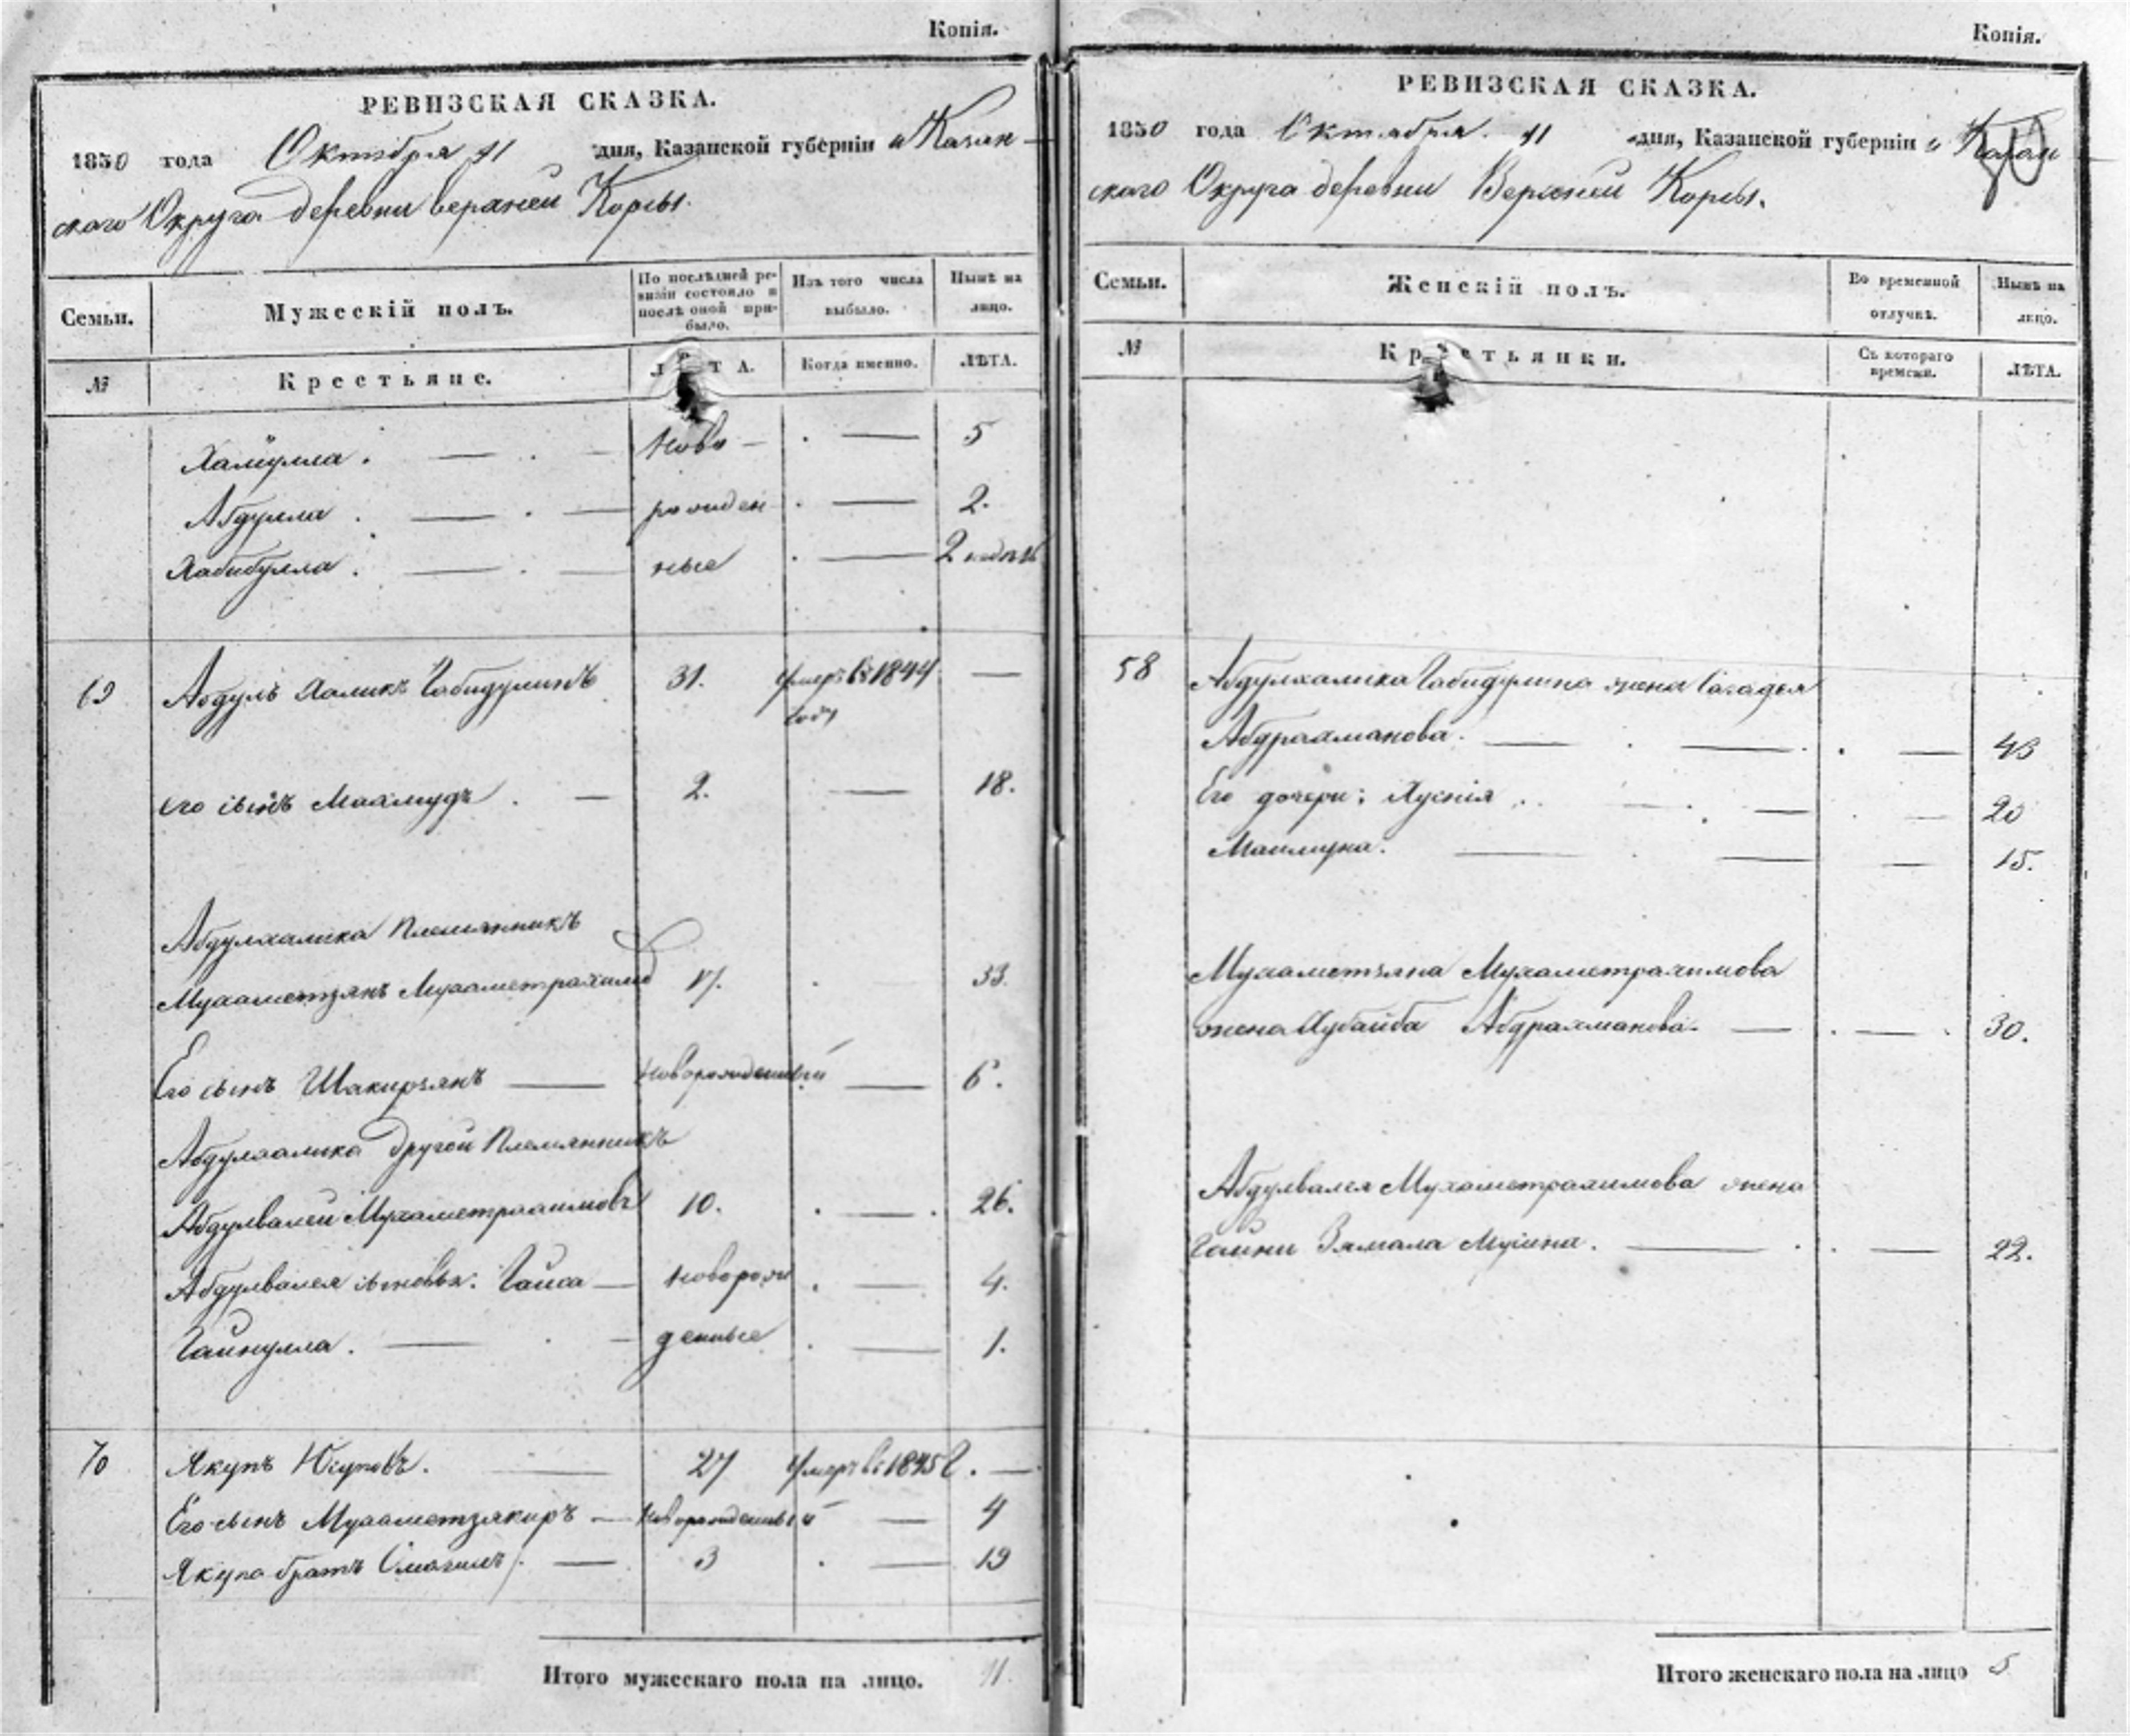 Копія.
РЕВИЗСКАЯ СКАЗКА.
1850 года Октября 11 дня, Казанской губерніи и Казан-
скаго Округа деревни верхней Корсы.
Семьи.
Мужескій полъ.
По послѣдней ре-
визіи состояло и
послѣ оной при-
было.
Изъ того числа
выбыло.
Нынѣ на
лицо.
№
Крестьяне.
ЛѢТА.
Когда именно.
ЛѢТА.
Халиулла. Ново 5
Абдулла. рожден 2.
Хабибулла. ные 2 недѣль
69 Абдулъ Халикъ Габидулинъ 31. умеръ въ 1844 —
году
его сынъ Махмудъ. 2. — 18.
Абдулхалика племянникъ
Мухаметзянъ Мухаметрахимов 17. 33.
Его сынъ Шакирзянъ — Новорожденный — 6.
Абдулхалика другой племянникъ
Абдулвалей Мухаметрахимовъ 10. — 26.
Абдулвалея сыновья: Гайса — новорож — 4.
Гайнулла. — денные — 1.
70 Якупъ Юсуповъ. — 27 умеръ въ 1845 г. —
Его сынъ Мухаметзакиръ — Новорожденный — 4
Якупа братъ Смагилъ. — 3 — 19
Итого мужескаго пола на лицо. 11.
Копія.
РЕВИЗСКАЯ СКАЗКА.
1850 года Октября 11 дня, Казанской губерніи и Казан
скаго Округа деревни Верхней Корсы.
Семьи.
Женскій полъ.
Во временной
отлучкѣ.
Нынѣ на
лицо.
№
Крестьянки.
Съ котораго
времени.
ЛѢТА.
58 Абдулхалика Габидулина жена Сагадея
Абдрахманова. — 43
Его дочери: Хуснія — 20
Маймуна. — 15.
Мухаметзяна Мухаметрахимова
жена Хубайба Абдрахманова. — 30.
Абдулвалея Мухаметрахимова жена
Гайни Зямала Мусина. — 22.
Итого женскаго пола на лицо 5